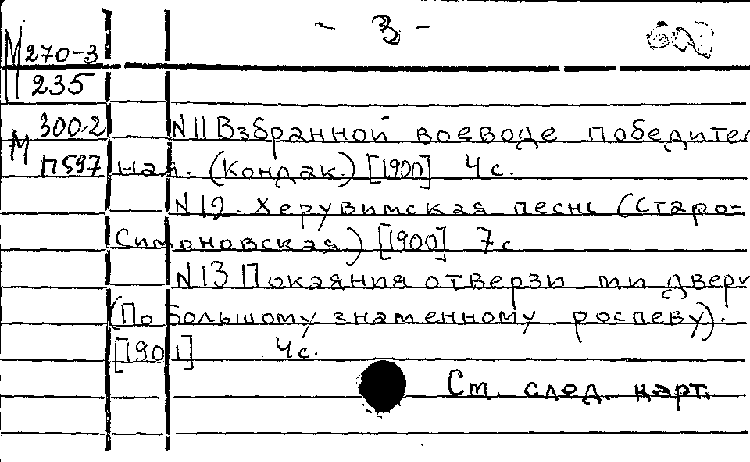 - 3 -
М 270-3
235
М 300-2
П597
N 11 Взбранной воеводе победитель
ная. (Кондак.) [1900] 4 с.
N 12. Херувимская песнь (Старо-
Симоновская.) [1900] 7 с
N 13 Покаяния отверзи ми двери
(По большому знаменному роспеву).
[1901] 4 с.
См. след. карт.